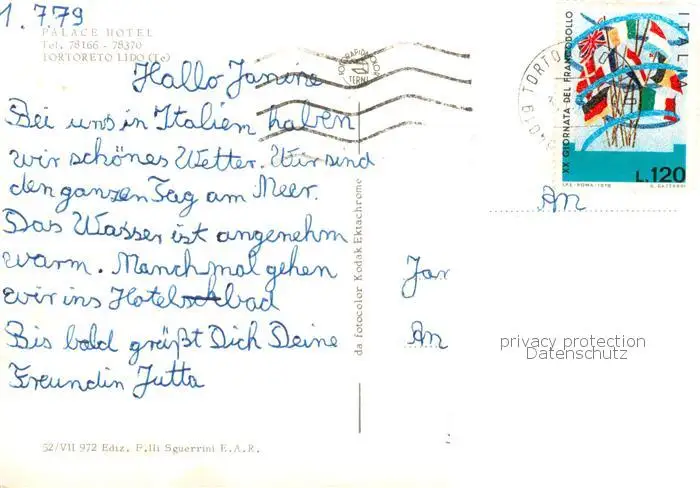 1.779
PALACE HOTEL
Tel. 78166 - 78370
TORTORETO LIDO (Te)
Hallo Janine
Bei uns in Italien haben
wir schönes Wetter. Wir sind
den ganzen Tag am Meer.
Das Wasser ist angenehm
warm. Manchmal gehen
wir ins Hotelbad
Bis bald grüßt Dich Deine
Freundin Jutta
52/VII 972 Ediz. F.lli Sguerrini E.A.R.
da fotocolor Kodak Ektachrome
TERNI
64019 TORTO
XX GIORNATA DEL FRANCOBOLLO
ITALIA
L.120
I.P.S.-ROMA-1978
An
Jan
An
privacy protection
Datenschutz